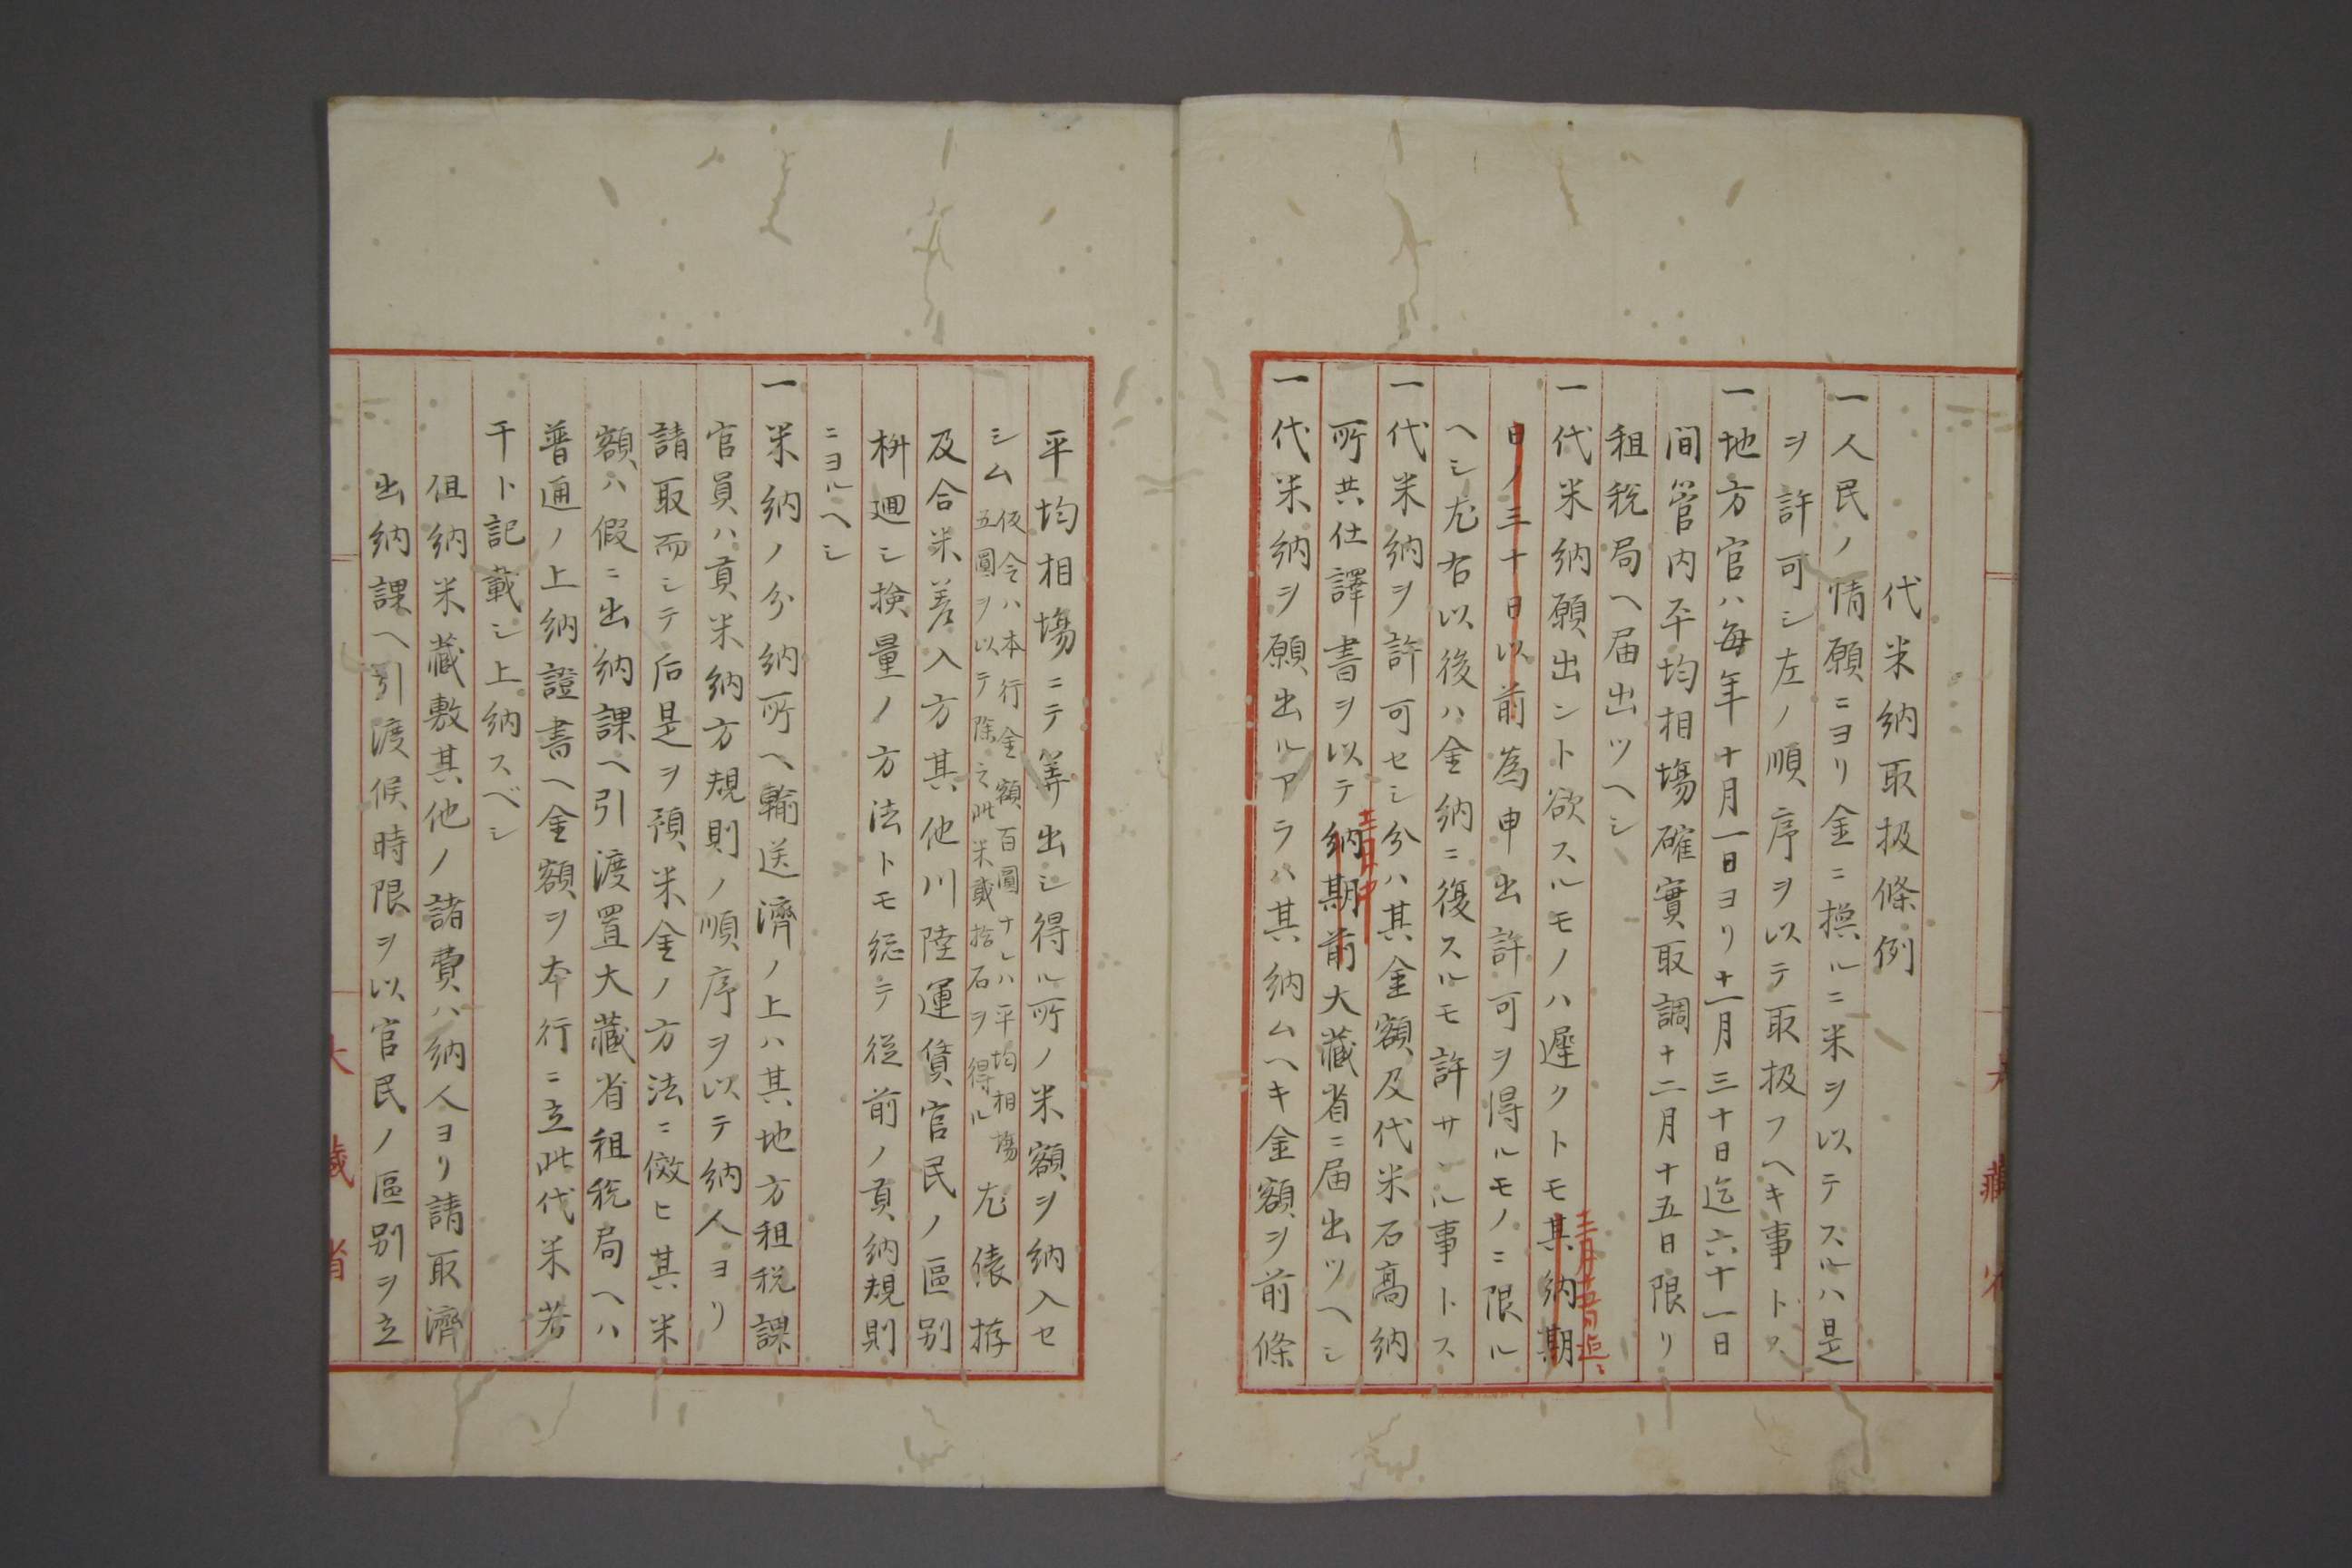 代米納取扱條例
一人民ノ情願ニヨリ金ニ換ルニ米ヲ以テスルハ是
ヲ許可シ左ノ順序ヲ以テ取扱フヘキ事トス
一地方官ハ毎年十月一日ヨリ十一月三十日迄六十一日
間管内平均相場確實取調十二月十五日限リ
租税局ヘ届出ツヘシ
一代米納願出ント欲スルモノハ遲クトモ其納期
十二月十五日迄ニ
日ノ三十日以前為申出許可ヲ得ルモノニ限ル
ヘシ尤右以後ハ金納ニ復スルモ許サヽル事トス
一代米納ヲ許可セシ分ハ其金額及代米石高納
所共仕譯書ヲ以テ納期前大藏省ニ届出ツヘシ
一代米納ヲ願出ルアラハ其納ムヘキ金額ヲ前條
大藏省
平均相場ニテ算出シ得ル所ノ米額ヲ納入セ
シム
仮令ハ本行金額百圓ナレハ平均相場
五圓ヲ以テ除之此米貳拾石ヲ得ル
尤俵拵
及合米差入方其他川陸運賃官民ノ區別
枡廻シ検量ノ方法トモ総テ從前ノ貢納規則
ニヨルヘシ
一米納ノ分納所ヘ輸送濟ノ上ハ其地方租税課
官員ハ貢米納方規則ノ順序ヲ以テ納人ヨリ
請取而シテ后是ヲ預米金ノ方法ニ傚ヒ其米
額ハ假ニ出納課ヘ引渡置大藏省租税局ヘハ
普通ノ上納證書ヘ金額ヲ本行ニ立此代米若
干ト記載シ上納スベシ
但納米藏敷其他ノ諸費ハ納人ヨリ請取濟
出納課ヘ引渡候時限ヲ以官民ノ區別ヲ立
大藏省